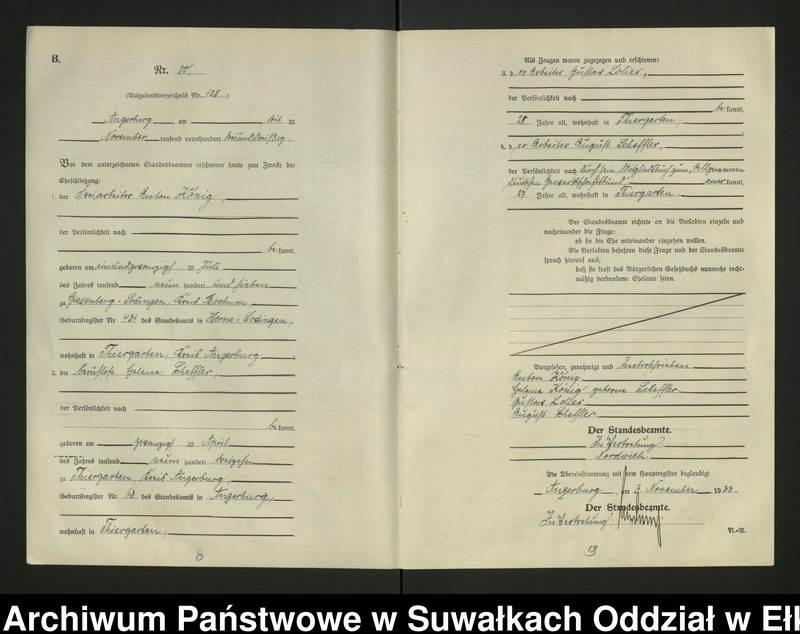 B.
Nr. 80.
(Aufgebotsverzeichnis Nr. 125.)
Angerburg, am drit en
November tausend neunhundert dreiunddreißig.
Vor dem unterzeichneten Standesbeamten erschienen heute zum Zwecke der
Eheschließung:
1. der Anton König,
der Persönlichkeit nach
be kannt,
geboren am einundzwanzigst en Juli
des Jahres tausend neun hundert und sieben
zu Giesenberg-Sodingen, Kreis Bochum
Geburtsregister Nr. 431 des Standesamts in Herne-Sodingen,
wohnhaft in Thiergarten, Kreis Angerburg,;
2. die berufslose Helene Scheffler,
der Persönlichkeit nach
be kannt,
geboren am zwanzigst en April
des Jahres tausend neun hundert dreizehn
zu Thiergarten, Kreis Angerburg,
Geburtsregister No. 43 des Standesamts in Angerburg,
wohnhaft in Thiergarten;
8
Als Zeugen waren zugezogen und erschienen:
3. d er Arbeiter Gustav Lolies,
der Persönlichkeit nach
be kannt,
28 Jahre alt, wohnhaft in Thiergarten,;
4. d er Arbeiter August Scheffler,
der Persönlichkeit nach durch sein Mitgliedbuch vom Allgemeinen
Deutschen Gewerkschaftsbund aner kannt,
27 Jahre alt, wohnhaft in Thiergarten.
Der Standesbeamte richtete an die Verlobten einzeln und
nacheinander die Frage:
ob sie die Ehe miteinander eingehen wollen.
Die Verlobten bejahten diese Frage und der Standesbeamte
sprach hierauf aus,
daß sie kraft des Bürgerlichen Gesetzbuchs nunmehr recht-
mäßig verbundene Eheleute seien.
Vorgelesen, genehmigt und unterschrieben
Anton König
Helene König geborene Scheffler
Gustav Lolies
August Scheffler
Der Standesbeamte.
In Vertretung
Nordwich
Die Übereinstimmung mit dem Hauptregister beglaubigt
Angerburg, am 3. November 1933.
Der Standesbeamte.
In Vertretung
N.-R.
9
Archiwum Państwowe w Suwałkach Oddział w Ełk